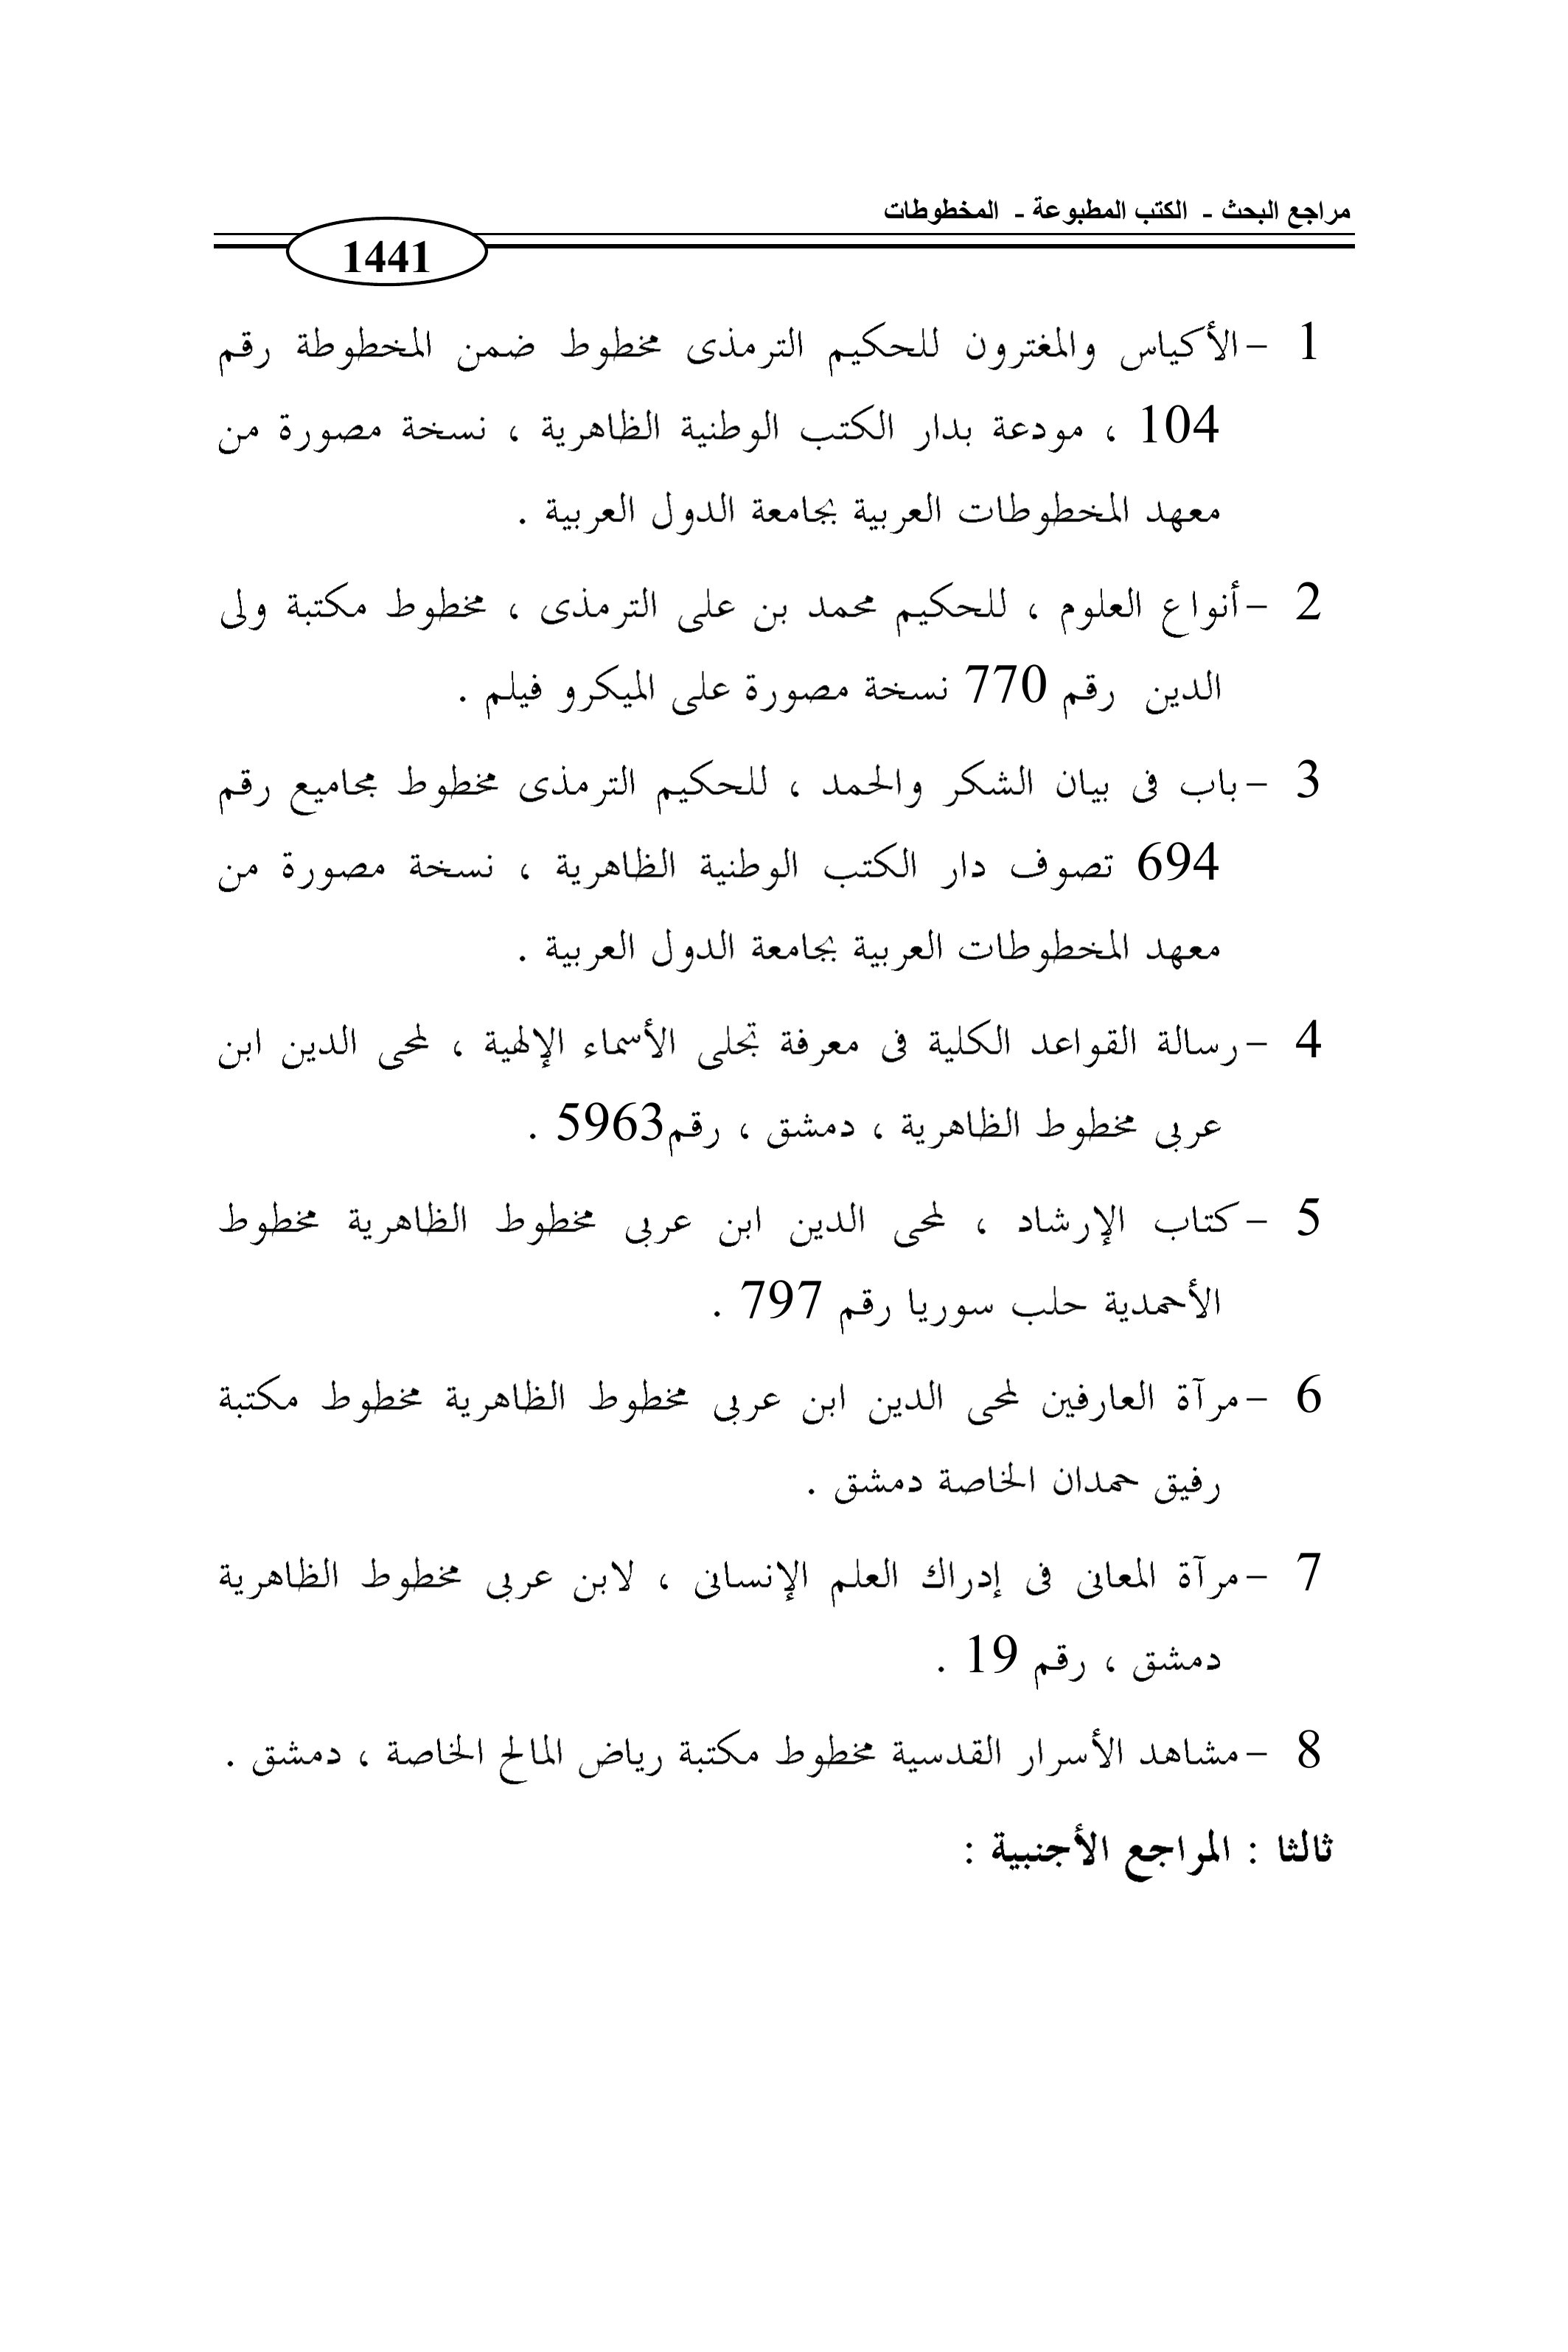 مراجع البحث - الكتب المطبوعة - المخطوطات
1441
1 -الأكياس والمغترون للحكيم الترمذى مخطوط ضمن المخطوطة رقم
104 ، مودعة بدار الكتب الوطنية الظاهرية ، نسخة مصورة من
معهد المخطوطات العربية بجامعة الدول العربية .
2 -أنواع العلوم ، للحكيم محمد بن على الترمذى ، مخطوط مكتبة ولى
الدين رقم 770 نسخة مصورة على الميكرو فيلم .
3 -باب فى بيان الشكر والحمد ، للحكيم الترمذى مخطوط مجاميع رقم
694 تصوف دار الكتب الوطنية الظاهرية ، نسخة مصورة من
معهد المخطوطات العربية بجامعة الدول العربية .
4 -رسالة القواعد الكلية فى معرفة تجلى الأسماء الإلهية ، لمحى الدين ابن
عربى مخطوط الظاهرية ، دمشق ، رقم5963 .
5 -كتاب الإرشاد ، لمحى الدين ابن عربى مخطوط الظاهرية مخطوط
الأحمدية حلب سوريا رقم 797 .
6 -مرآة العارفين لمحى الدين ابن عربى مخطوط الظاهرية مخطوط مكتبة
رفيق حمدان الخاصة دمشق .
7 -مرآة المعانى فى إدراك العلم الإنسانى ، لابن عربى مخطوط الظاهرية
دمشق ، رقم 19 .
8 -مشاهد الأسرار القدسية مخطوط مكتبة رياض المالح الخاصة ، دمشق .
ثالثا : المراجع الأجنبية :